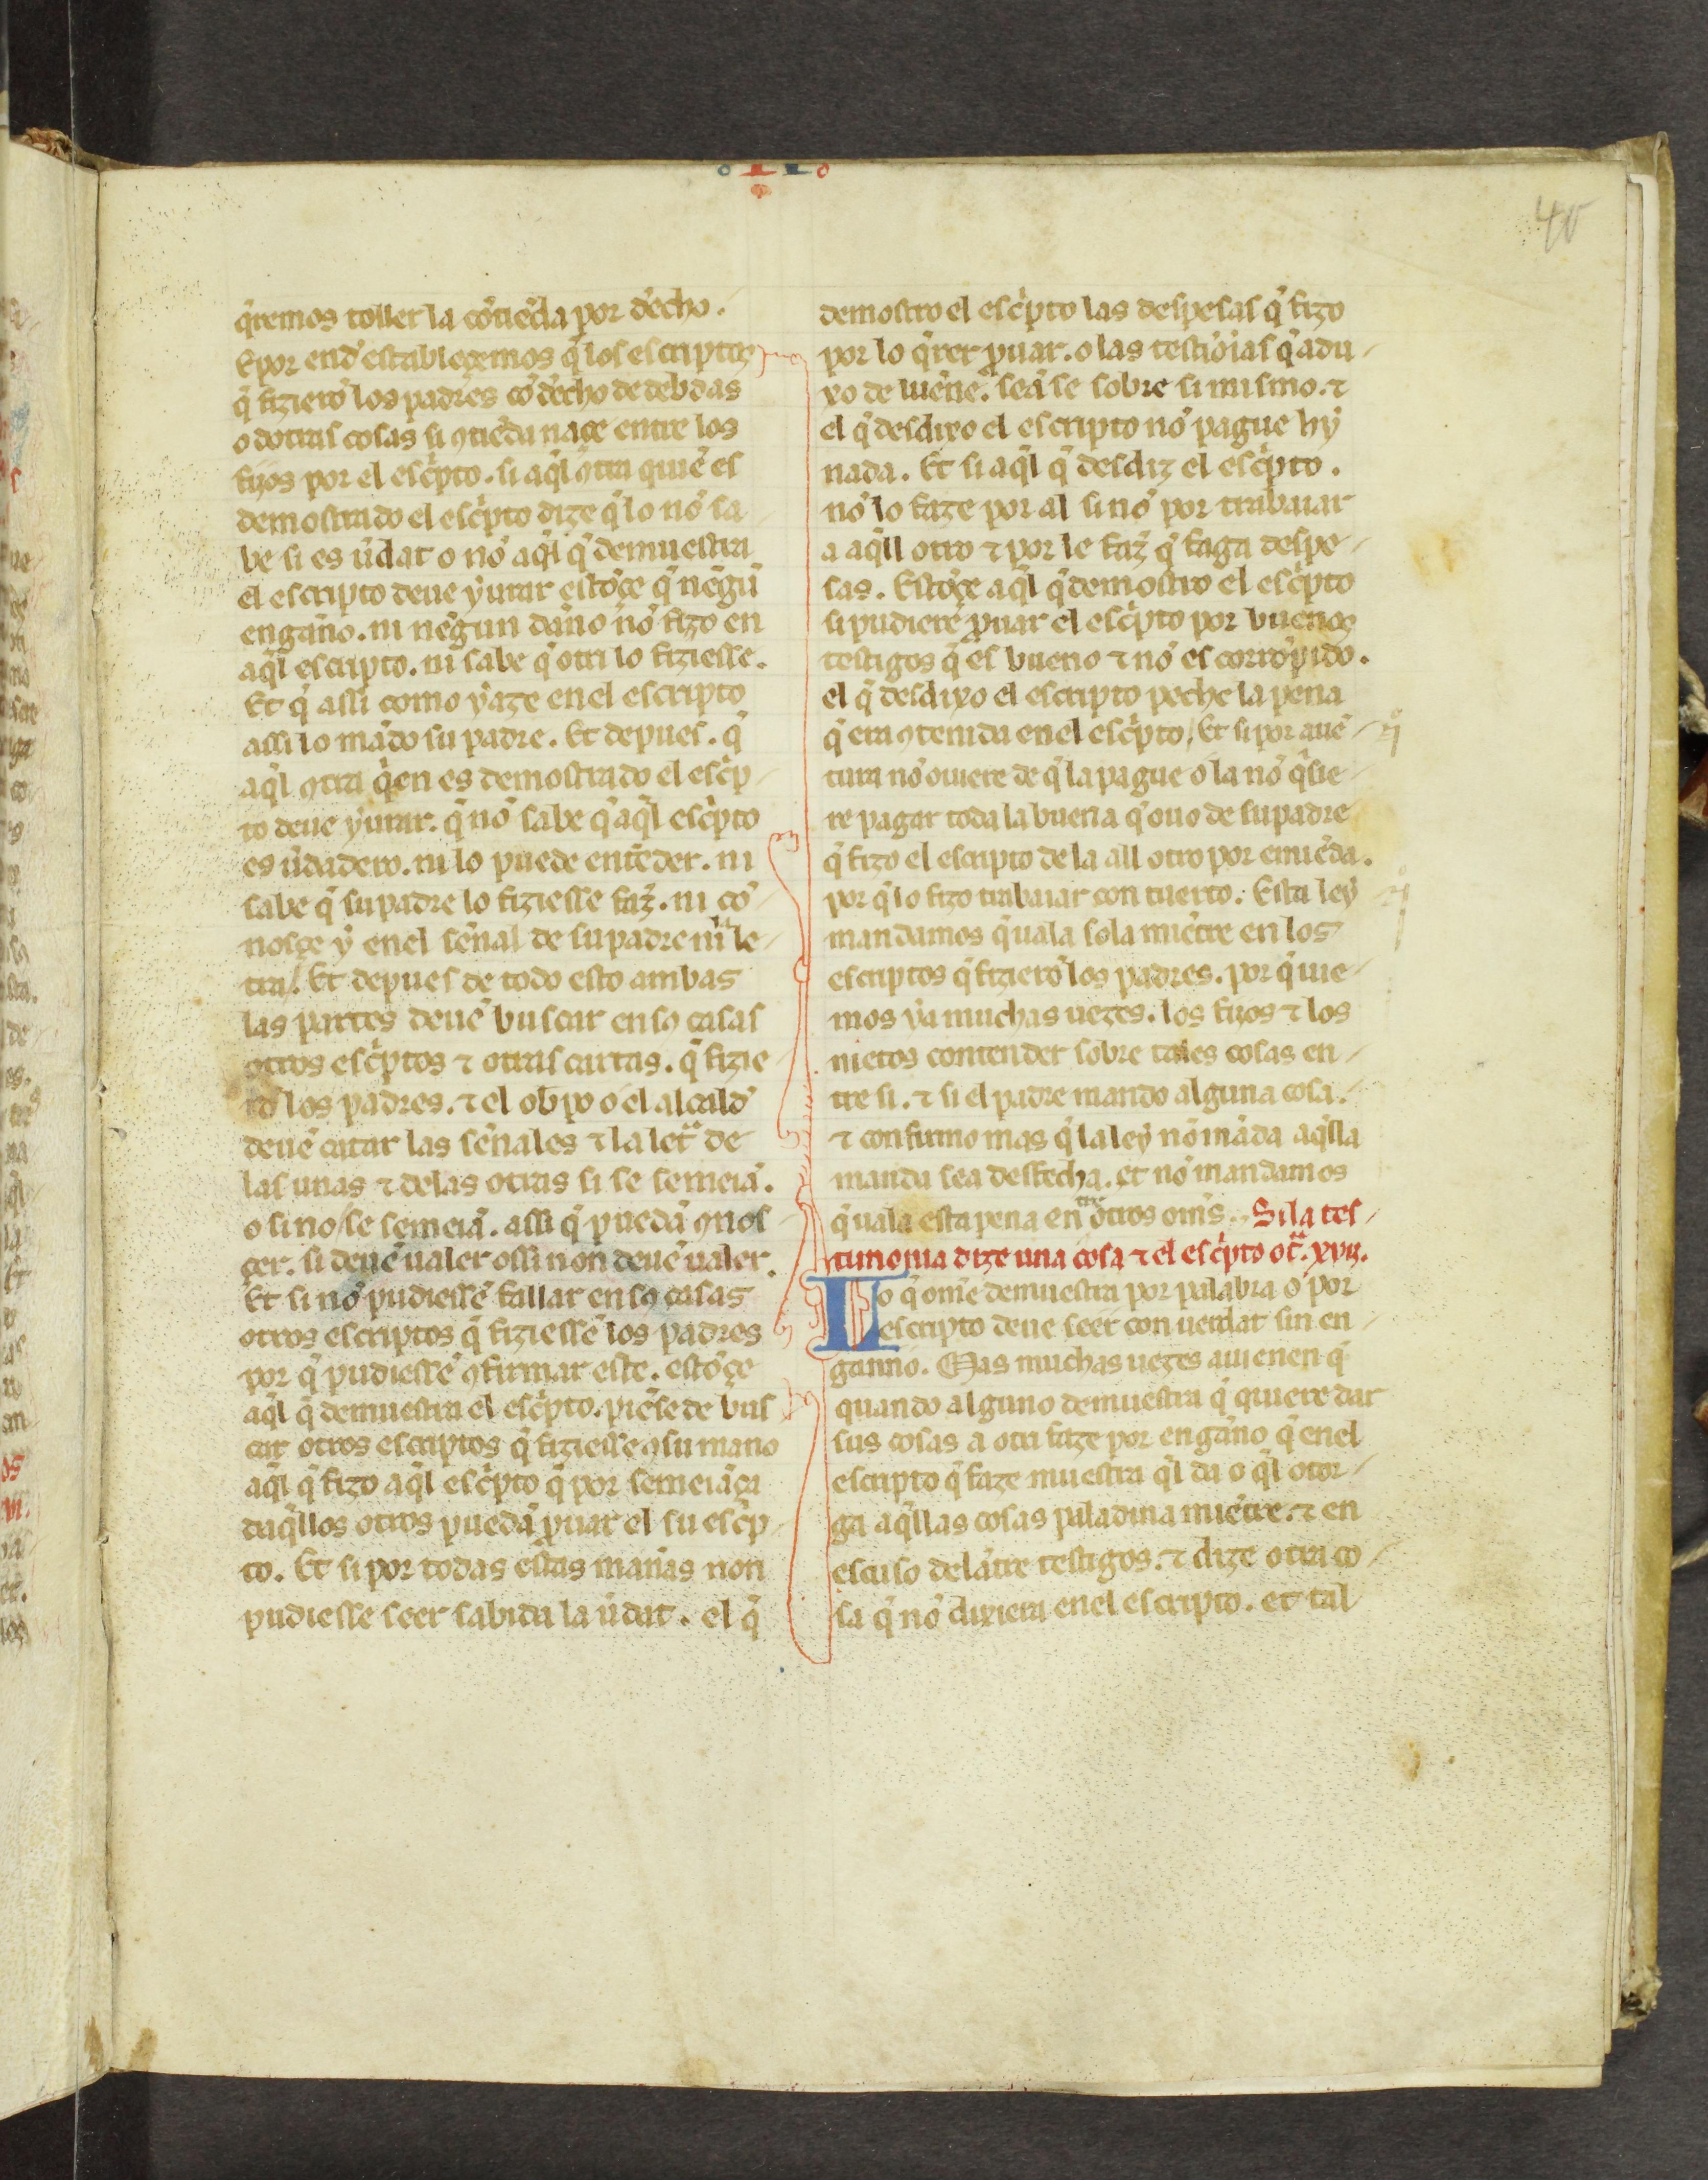 o I I o
40
q̃remos toller la cõtiẽda por d̃echo.
E por end̃ establecemos q̃ los escriptos
q̃ fizierõ los padres cõ d̃echo de debdas
o dotras cosas si ꝯtiẽda naçe entre los
fijos por el esc̃pto. si aq̃l ꝯtra quiẽ es
demostrado el esc̃pto dize q̃ lo nõ sa
be si es ũdat o nõ aq̃l q̃ demuestra
el escripto deue yurar estõçe q̃ nẽgũ
engãno. ni nẽgun dãno nõ fizo en
aq̃l escripto. ni sabe q̃ otri lo fiziesse.
Et q̃ assi como yaze en el escripto
assi lo mãdo su padre. Et depues. q̃
aq̃l ꝯtra q̃en es demostrado el esc̃p
to deue yurar. q̃ nõ sabe q̃ aq̃l esc̃pto
es ũdadero. ni lo puede entẽder. ni
sabe q̃ su padre lo fiziesse faz̃. ni cõ
nosçe y en el sẽnal de su padre ni le
tra. Et depues de todo esto ambas
las partes deuẽ buscar en sꝯ casas
otros esc̃ptos ⁊ otras cartas. q̃ fizie
rõ los padres. ⁊ el ob̃po o el alcald̃
deuẽ catar las sẽnales ⁊ la let̃ de
las unas ⁊ de las otras si se semeiã.
o si no se semeiã. assi q̃ puedã ꝯnos
çer. si deuẽ ualer o ssi non deuẽ ualer.
Et si nõ pudiessẽ fallar en sꝯ casas
otros escriptos q̃ fiziessẽ los padres
por q̃ pudiessẽ ꝯfirmar este. estõçe
aq̃l q̃ demuestra el esc̃pto. piẽse de bus
car otros escriptos q̃ fiziesse ꝯ su mano
aq̃l q̃ fizo aq̃l esc̃pto q̃ por semeiãça
daq̃llos otros puedã ꝓuar el su esc̃p
to. Et si por todas estas mañas non
pudiesse seer sabida la ũdat. el q̃
demostro el esc̃pto las despesas q̃ fizo
por lo q̃rer ꝓuar. o las testiõias q̃ adu
xo de luẽne. seã se sobre si mismo. ⁊
el q̃ desdixo el escripto nõ pague hy
nada. Et si aq̃l q̃ desdiz el esc̃pto.
nõ lo faze por al si nõ por trabaiar
a aq̃ll otro ⁊ por le faz̃ q̃ faga despe
sas. Estõçe aq̃l q̃ demostro el esc̃pto
si pudiere ꝓuar el esc̃pto por buenos
testigos q̃ es bueno ⁊ nõ es corrõpido.
el q̃ desdixo el escripto peche la pena
q̃ era ꝯtenida en el esc̃pto. Et si por auẽ
tura nõ ouiere de q̃ la pague o la nõ q̃sie
re pagar toda la buena q̃ ouo de su padre
q̃ fizo el escripto de la all otro por emiẽda.
por q̃ lo fizo trabaiar con tuerto. Esta ley
mandamos q̃ uala sola miẽtre en los
escriptos q̃ fizierõ los padres. por q̃ uie
mos ya muchas uezes. los fijos ⁊ los
nietos contender sobre tales cosas en
tre si. ⁊ si el padre mando alguna cosa.
⁊ confirmo mas q̃ la ley nõ mãda aq̃lla
manda sea desfecha. et nõ mandamos
q̃ uala esta pena en tre otros om̃s. Si la tes
timonia dize una cosa ⁊ el esc̃pto ot̃. xvij.
Lo q̃ om̃e demuestra por palabra o por
escripto deue seer con uerdat sin en
ganno. Mas muchas uezes auienen q̃
quando alguno demuestra q̃ quiere dar
sus cosas a otri faze por engãno q̃ en el
escripto q̃ faze muestra q̃l da o q̃l otor
ga aq̃llas cosas paladina miẽtre. ⁊ en
escuso delãtre testigos. ⁊ dize otra co
sa q̃ nõ dixiera en el escripto. et tal